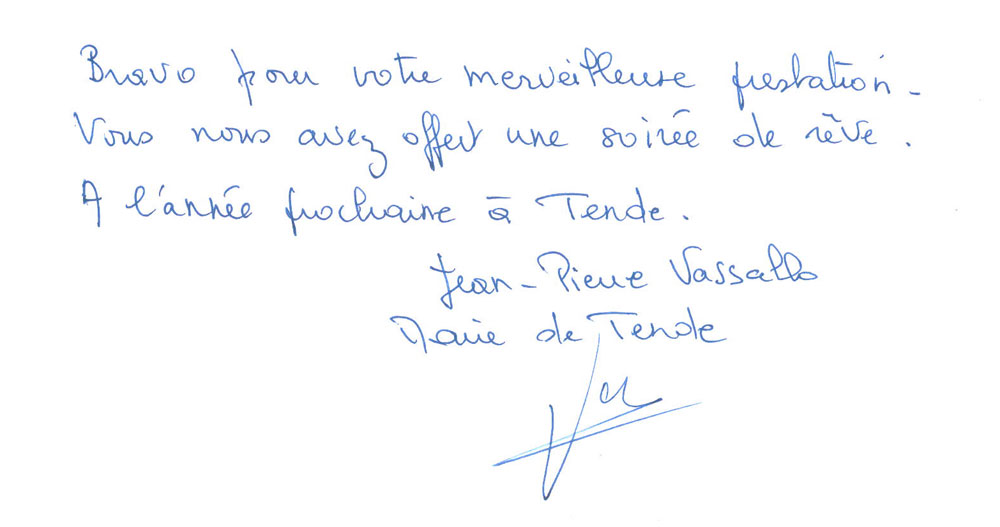 Bravo pour votre merveilleuse prestation.
Vous nous avez offert une soirée de rêve.
A l'année prochaine à Tende.
Jean-Pierre Vassallo
Maire de Tende